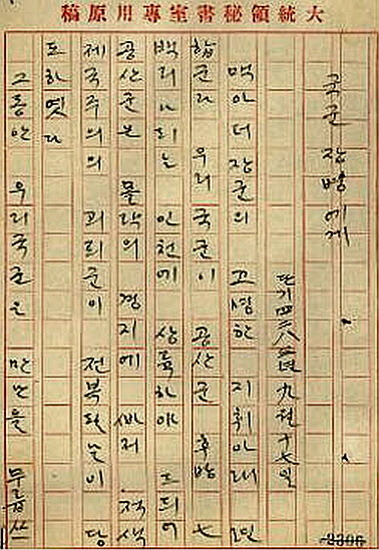 大統領秘書室專用原稿
국군 장병에게
단기四二八三年 九월十七일
맥아더장군의 고명한 지휘아래 련
합군과 우리 국군이 공산군 후방 七
백리나되는 인천에 상륙하야 드듸어
공산군은 몰락의 경지에 빠저 적색
제국주의의 괴뢰군이 전복될날이 당
도하엿다
그동안 우리국군은 만난을 무릅쓰
2306